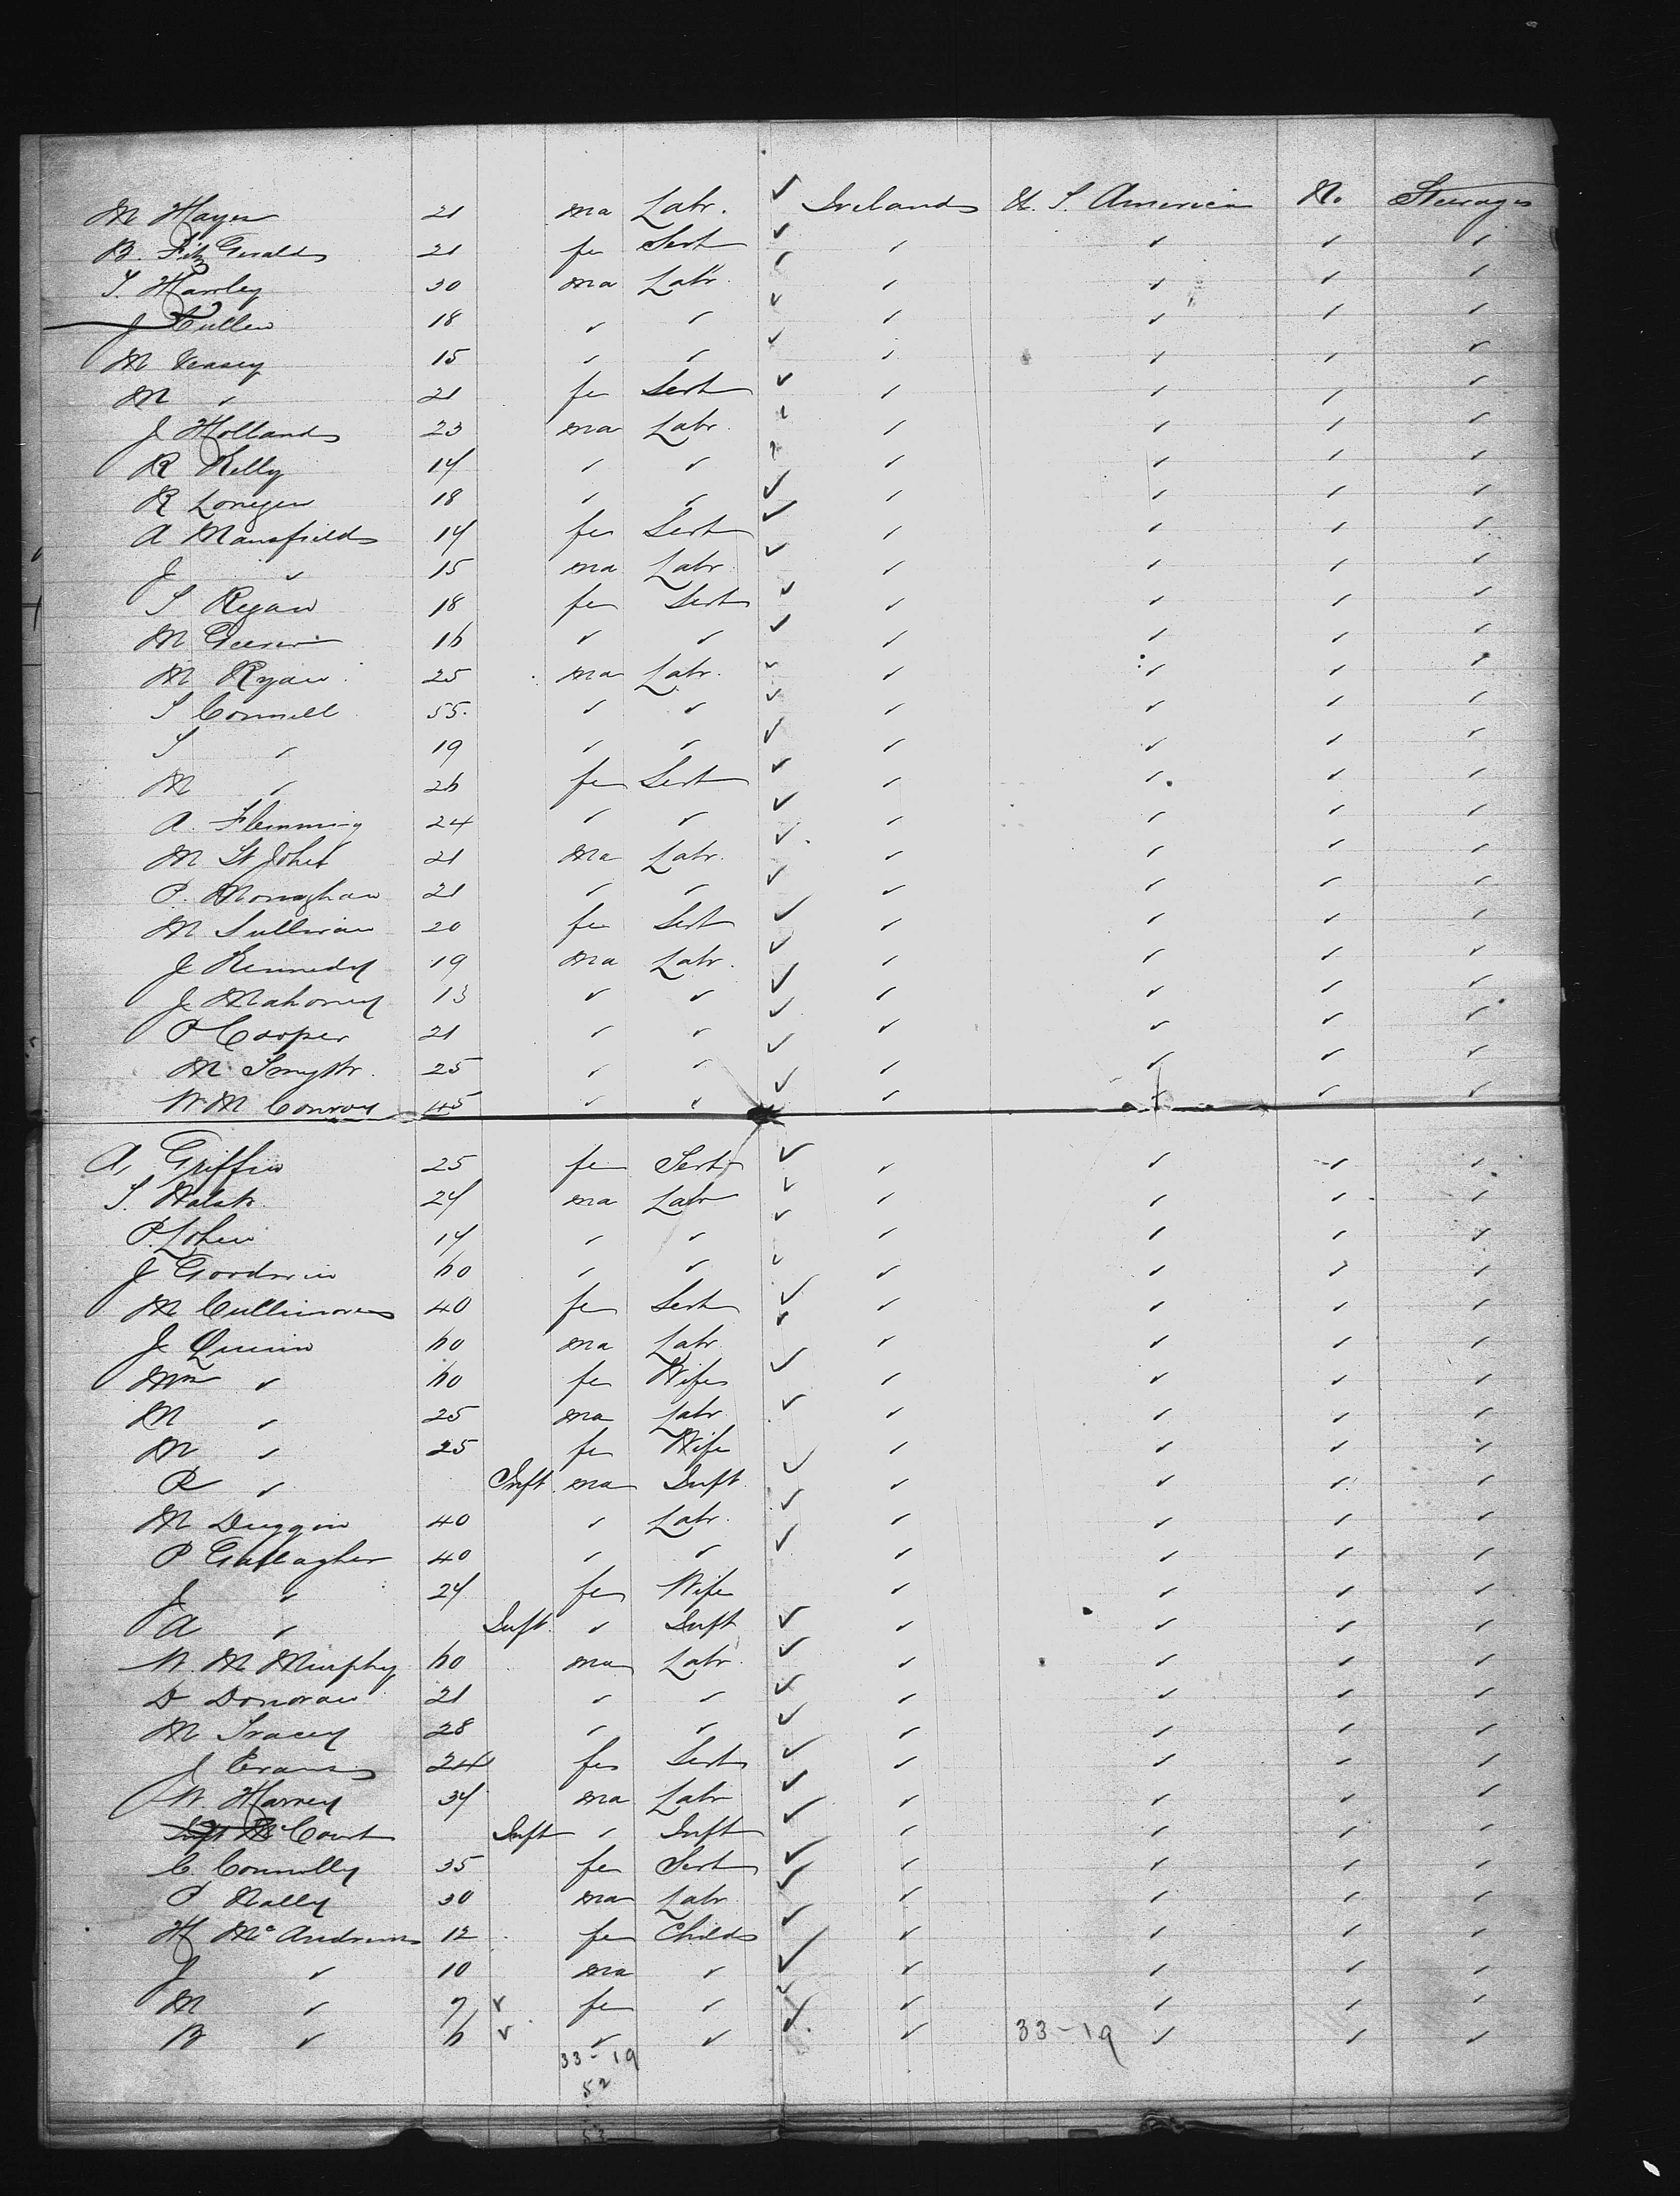 M Hayes 21 ma Labr. ✓ Ireland U. S. America No Steerage
B. Fitz Gerald 21 fe Sert ✓ ✓ ✓ ✓ ✓
S. Hawley 30 ma Labr. ✓ ✓ ✓ ✓ ✓
J Cullen 18 ✓ ✓ ✓ ✓ ✓ ✓ ✓
M Veasey 15 ✓ ✓ ✓ ✓ ✓ ✓ ✓
M ✓ 21 fe Sert ✓ ✓ ✓ ✓ ✓
J Holland 23 ma Labr. ✓ ✓ ✓ ✓ ✓
R Kelly 14 ✓ ✓ ✓ ✓ ✓ ✓ ✓
R Lonegen 18 ✓ ✓ ✓ ✓ ✓ ✓ ✓
A Mansfield 14 fe Sert ✓ ✓ ✓ ✓ ✓
J ✓ 15 ma Labr. ✓ ✓ ✓ ✓ ✓
S Regan 18 fe Sert ✓ ✓ ✓ ✓ ✓
M 16 ✓ ✓ ✓ ✓ ✓ ✓ ✓
M Ryan 25 ma Labr. ✓ ✓ ✓ ✓ ✓
S Connell 55. ✓ ✓ ✓ ✓ ✓ ✓ ✓
S ✓ 19 ✓ ✓ ✓ ✓ ✓ ✓ ✓
M ✓ 26 fe Sert ✓ ✓ ✓ ✓ ✓
A. Flemming 24 ✓ ✓ ✓ ✓ ✓ ✓ ✓
M St John 21 ma Labr. ✓ ✓ ✓ ✓ ✓
P. Monaghan 21 ✓ ✓ ✓ ✓ ✓ ✓ ✓
M Sullivan 20 fe Sert ✓ ✓ ✓ ✓ ✓
J Kennedy 19 ma Labr. ✓ ✓ ✓ ✓ ✓
J Mahoney 13 ✓ ✓ ✓ ✓ ✓ ✓ ✓
P Cooper 21 ✓ ✓ ✓ ✓ ✓ ✓ ✓
M Smyth. 25 ✓ ✓ ✓ ✓ ✓ ✓ ✓
W. M Conroy 45 ✓ ✓ ✓ ✓ ✓ ✓
A, Griffin 25 fe Sert ✓ ✓ ✓ ✓ ✓
S. Walsh. 24 ma Labr ✓ ✓ ✓ ✓ ✓
P. Lohen 14 ✓ ✓ ✓ ✓ ✓ ✓ ✓
J Goodwin 60 ✓ ✓ ✓ ✓ ✓ ✓ ✓
M Cullimore 40 fe Sert ✓ ✓ ✓ ✓ ✓
J Quinn 60 ma Labr. ✓ ✓ ✓ ✓ ✓
Mrs ✓ 60 fe Wife ✓ ✓ ✓ ✓ ✓
M ✓ 25 ma Labr. ✓ ✓ ✓ ✓ ✓
M ✓ 25 fe Wife ✓ ✓ ✓ ✓
R ✓ Inft. ma Inft. ✓ ✓ ✓ ✓ ✓
M Duggin 40 ✓ Labr. ✓ ✓ ✓ ✓ ✓
P Gallagher 40 ✓ ✓ ✓ ✓ ✓ ✓ ✓
J ✓ 24 fe Wife ✓ ✓ ✓ ✓
A ✓ Inft. ✓ Inft ✓ ✓ ✓ ✓ ✓
W. M Murphy 60 ma Labr. ✓ ✓ ✓ ✓ ✓
D Donovan 21 ✓ ✓ ✓ ✓ ✓ ✓ ✓
M Tracey 28 ✓ ✓ ✓ ✓ ✓ ✓ ✓
J Evans 24 fe Sert ✓ ✓ ✓ ✓ ✓
W Harvey 34 ma Labr ✓ ✓ ✓ ✓ ✓
Inft McCourt Inft ✓ Inft ✓ ✓ ✓ ✓ ✓
C. Connelly 35 fe Sert ✓ ✓ ✓ ✓ ✓
P Nally 30 ma Labr. ✓ ✓ ✓ ✓ ✓
H McAndrews 12 fe Child ✓ ✓ ✓ ✓ ✓
J ✓ 10 ma ✓ ✓ ✓ ✓ ✓ ✓
M ✓ 7 ✓ fe ✓ ✓ ✓ ✓ ✓ ✓
B ✓ 6 ✓ ✓ ✓ ✓ ✓ 33-19 ✓ ✓ ✓
33-19
52
53